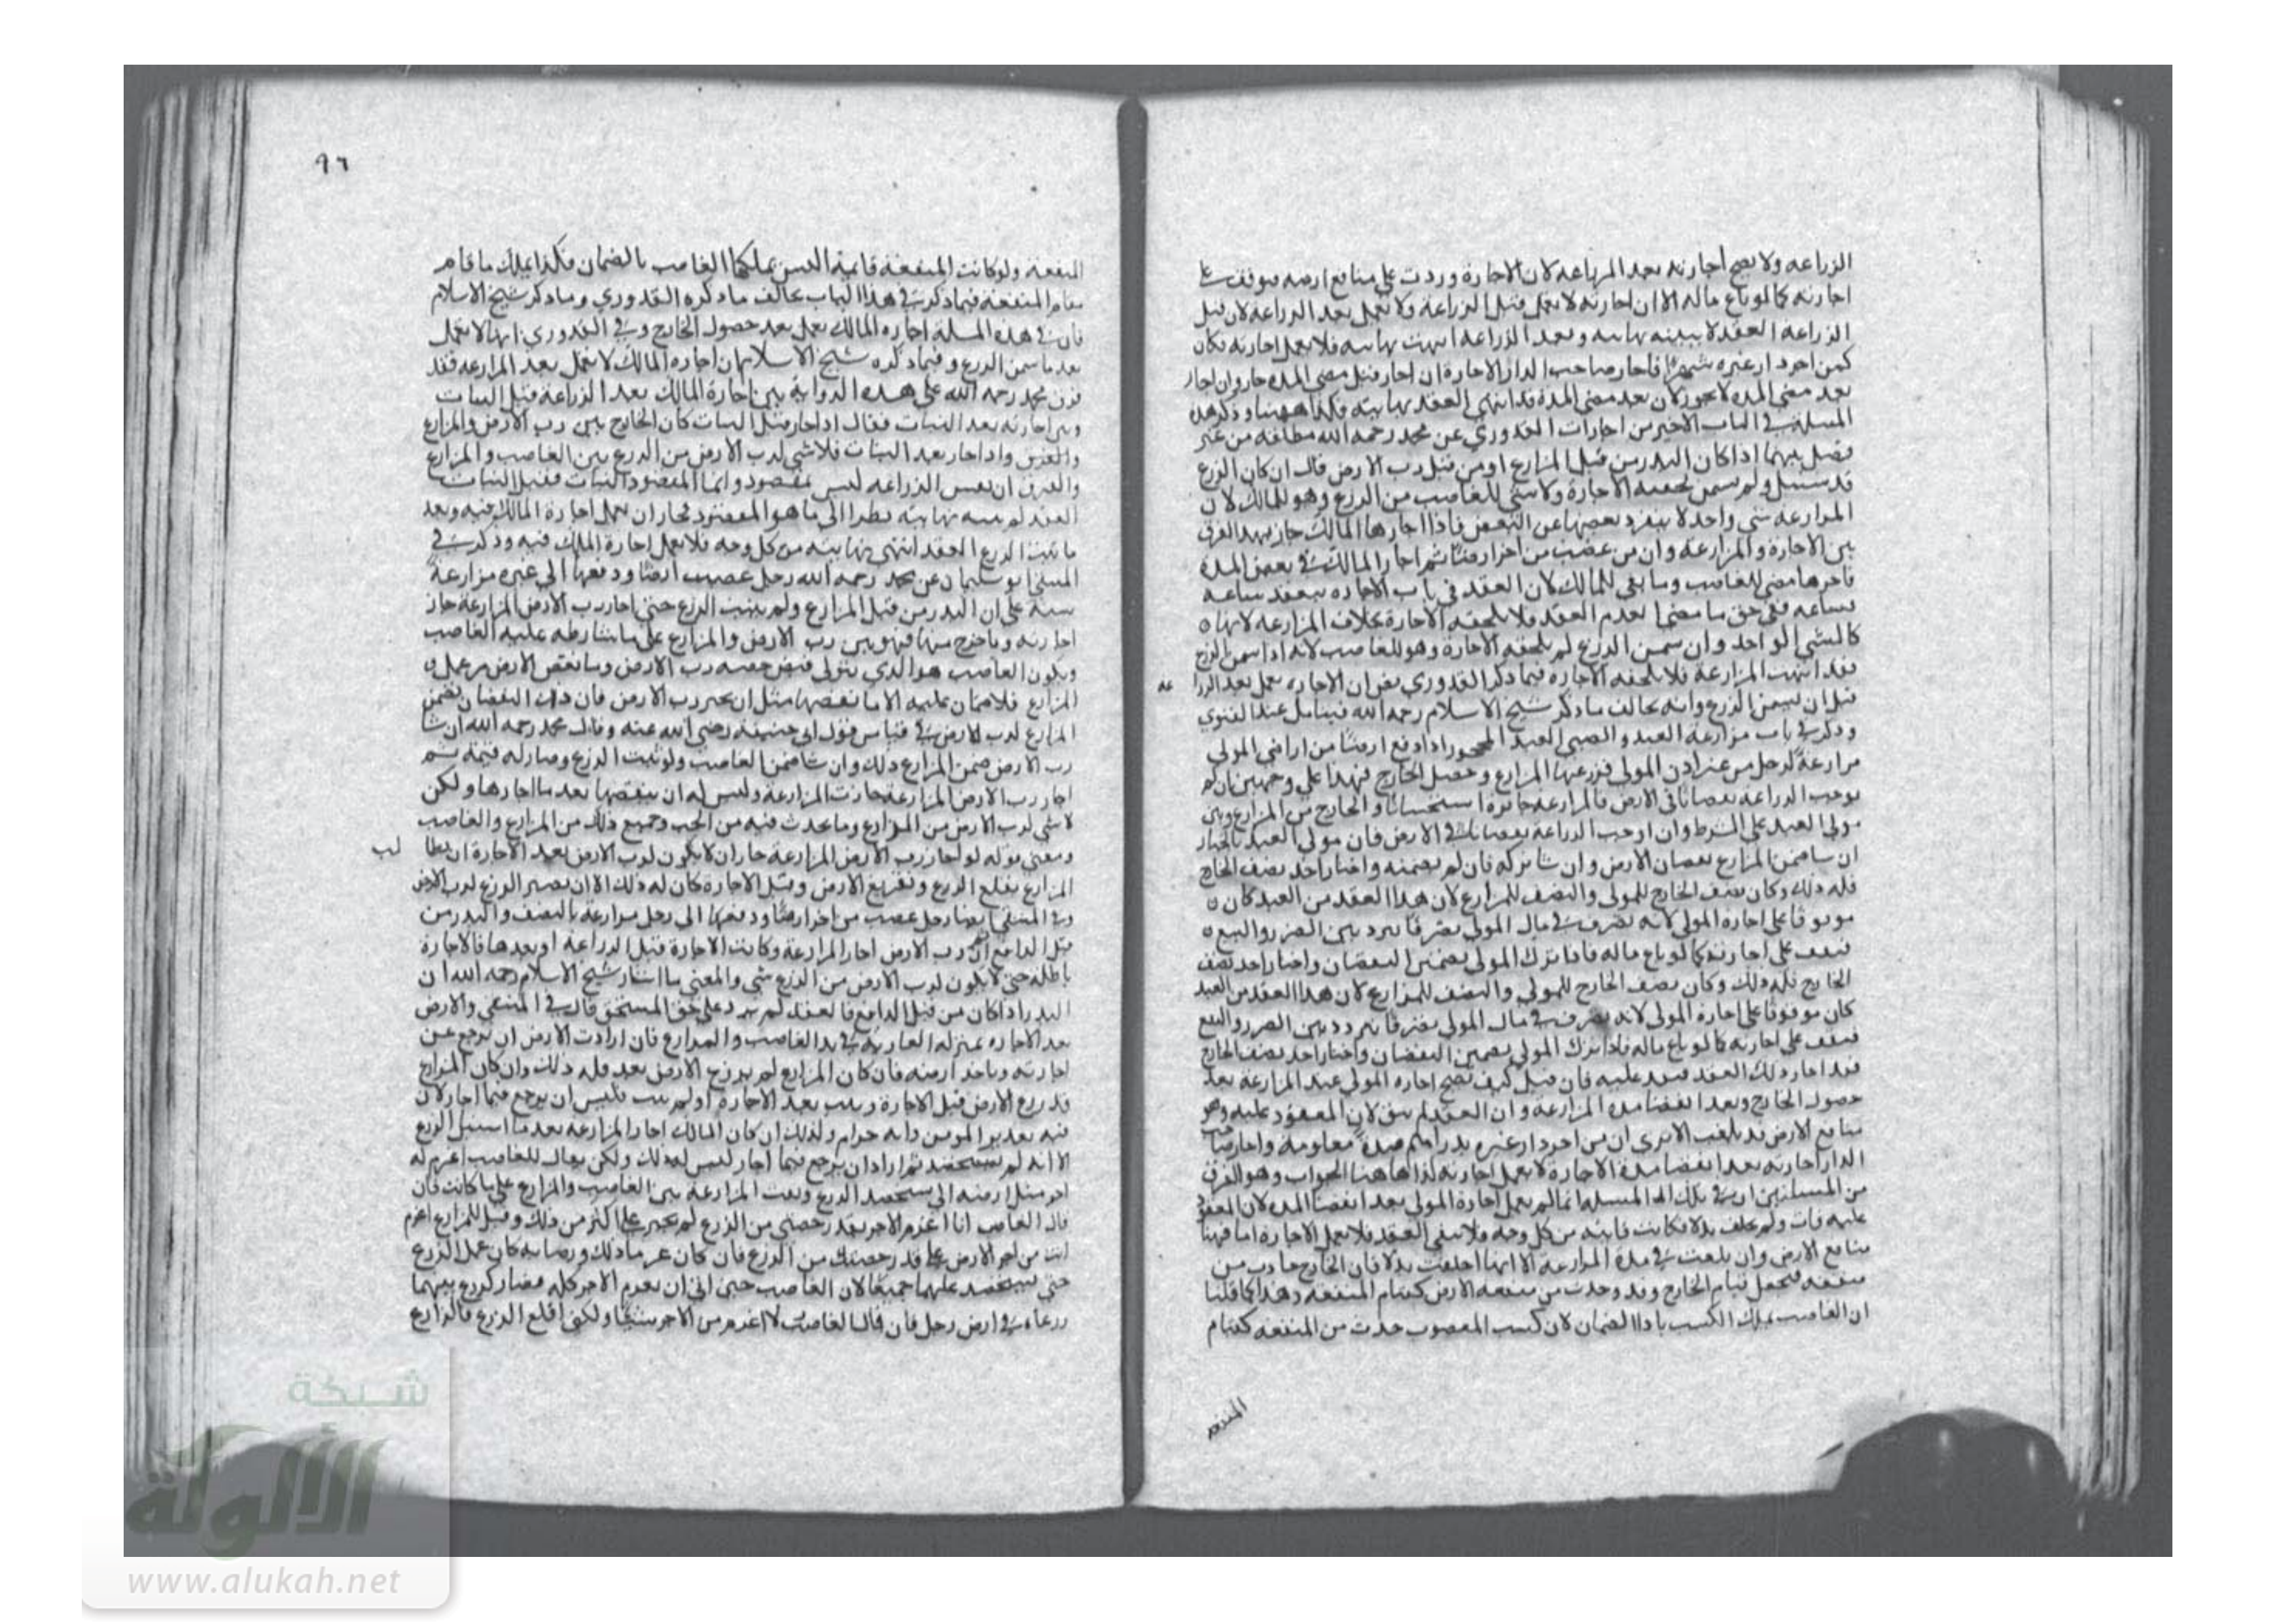 الزراعه ولا يصح اجازته بعد المزارعه لان الاجارة وردت على منافع ارضه فيوقف على
اجازته كما لو باع ماله الا ان اجازته لا تعمل قبل الزراعة ولا تعمل بعد الزراعة لان قبل
الزراعه العقد لا نهايته وبعد الزراعه انتهت نهايته فلا تعمل اجازته فكان
كمن اجر دار غيره شهرا فاجاز صاحب الدار الاجارة ان اجاز قبل مضي المده جاز وان اجاز
بعد مضي المده لا يجوز لان بعد مضي المدة قد انتهى العقد نهايته فكذا ههنا وذكر هذه
المسلة في الباب الاخير من اجارات القدوري عن محمد رحمه الله مطلقه من غير
فصل بينهما اذا كان البدر من قبل المزارع او من قبل رب الارض قال ان كان الزرع
قد سنبل ولم يسمن لحقته الاجازة ولا شي للغاصب من الزرع وهو للمالك لان
المزارعه شي واحد لا ينفرد بعضها عن البعض فاذا اجازها المالك جاز بهذا الفرق
بين الاجارة والمزارعة وان من غصب من اخر ارضا ثم اجاز المالك في بعض المدة
فاجر ما مضى للغاصب وما بقي للمالك لان العقد في باب الاجاره ينعقد ساعه
فساعه ففي حق ما مضى انعدم العقد فلا تلحقه الاجازة بخلاف المزارعه لانها
كالشي الواحد وان سمن الزرع لم تلحقه الاجازة وهو للغاصب لانه اذا سمن الزرع
فقد انتهت المزارعة فلا تلحقه الاجازه فيما ذكر القدوري نص ان الاجازه تعمل بعد الزرا عه
قبل ان يسمن الزرع وانه يخالف ما ذكر شيخ الاسلام رحمه الله فيتامل عند الفتوى
وذكر في باب مزارعة العبد والصبي العبد المحجور اذا دفع ارضا من اراضي المولى
مزارعة لرجل من غير اذن المولى فزرعها المزارع وحصل الخارج فهذا على وجهين ان لم
توجب الزراعه نقصانا في الارض فالمزارعة جائزة استحسانا والخارج بين المزارع وبين
مولى العبد على الشرط وان اوجب الزراعة نقصانا في الارض فان مولى العبد بالخيار
ان شا ضمن المزارع نقصان الارض وان شا تركه فان لم يضمنه واختار اخذ نصف الخارج
فله ذلك وكان نصف الخارج للمولى والنصف للمزارع لان هذا العقد من العبد كان
موقوفا على اجازة المولى لانه تصرف في مال المولى تصرفا تردد بين الضرر والنفع
فتقف على اجازته كما لو باع ماله فاذا ترك المولى تضمين النقصان واختار اخذ نصف
الخارج فله ذلك وكان نصف الخارج للمولى والنصف للمزارع لان هذا العقد من العبد
كان موقوفا على اجازة المولى لانه تصرف في مال المولى تصرفا تردد بين الضرر والنفع
فتقف على اجازته كما لو باع ماله فاذا ترك المولى تضمين النقصان واختار اخذ نصف الخارج
فقد اجاز ذلك العقد فنفد عليه فان قيل كيف تصح اجازه المولى عبد المزارعة بعد
حصول الخارج وبعد انقضا مدة المزارعة وان العقد لم يبق لان المعقود عليه وهو
منافع الارض قد الا ترى ان من اجر دار غيره بدراهم مدة معلومة واجاز صاحب
الدار اجازته بعد انقضا مدة الاجارة لا تعمل اجازته كذا هاهنا الجواب وهو الفرق
من المسلتين ان في تلك المسلة انما لم تعمل اجازة المولى بعد انقضا المده لان المعقود
عليه فات ولم يخلف بدلا فكانت فائته من كل وجه فلا يبقى العقد فلا تعمل الاجازة اما فيهنا
منافع الارض وان تلفت في مدة المزارعة الا انها اخلفت بدلا فان الخارج حادث من
منفعه فيجعل قيام الخارج وقد وحدث من منفعه الارض كقيام المنفعه وهذا كما قلنا
ان الغاصب يملك الكسب باداا الضمان لان كسب المغصوب حدث من المنفعه كقيام
المنفعه
٩٦
المنفعة ولو كانت المنفعة قايمة يملكها الغاصب بالضمان فكذا يملك ما قام
مقام المنفعة فيما ذكر في هذا الباب يخالف ما ذكره القدوري وما ذكر شيخ الاسلام
فان في هذه المسلة اجازه المالك تعمل بعد حصول الخارج وفي القدوري انها لا تعمل
بعد ما سمن الزرع وفيما ذكره شيخ الاسلام ان اجازه المالك لا تعمل بعد المزارعه فقد
فرق محمد رحمه الله على هذه الرواية بين اجازة المالك بعد الزراعة قبل النبات
وبين اجازته بعد النبات فقال اذا اجاز قبل النبات كان الخارج بين رب الارض والمزارع
واذا اجاز بعد النبات فلا شي لرب الارض من الزرع بين الغاصب والمزارع
والفرق ان نفس الزراعه ليس بمقصود وانما المقصود النبات فقبل النبات
العقد لم ينته نهايته نظرا الى ما هو المقصود فجاز ان تعمل اجازة المالك فيه وبعد
ما نبت الزرع العقد انتهى نهايته من كل وجه فلا تعمل اجازة الملك فيه وذكر في
المنتقى ابو سليمان عن محمد رحمه الله رجل غصب ارضا ودفعها الى غيره مزارعة
سنة على ان البدر من قبل المزارع ولم ينبت الزرع حتى اجاز رب الارض المزارعة جاز
اجازته وما خرج منها فهو بين رب الارض والمزارع على ما شارطه عليه الغاصب
ويكون الغاصب هو الذي يتولى قبض حصه رب الارض وما نقص الارض من عمل
المزارع فلا ضمان عليه الا ما نقصها مثل ان يجيز رب الارض فان ذلك النقصان يضمن
المزارع لرب الارض في قياس قول ابي حنيفه رضي الله عنه وقال محمد رحمه الله ان شا
رب الارض ضمن المزارع ذلك وان شا ضمن الغاصب ولو نبت الزرع وصار له قيمة ثم
اجاز رب الارض المزارعة جازت المزارعة وليس له ان ينقضها بعد ما اجازها ولكن
لا شي لرب الارض من المزارع وما يحدث فيه من الحب وجميع ذلك بين المزارع والغاصب
ومعنى قوله لو اجاز رب الارض المزارعة جاز ان لا يكون لرب الارض بعد الاجازة ان يطا لب
المزارع بقلع الزرع وتفريغ الارض وقبل الاجازة كان له ذلك الا ان يصير الزرع لرب الارض
وفي المنتقى ايضا رجل غصب من اخر ارضا ودفعها الى رجل مزارعة بالنصف والبدر من
قبل الدافع ثم ان رب الارض اجاز المزارعة وكانت الاجازة قبل الزراعة او بعدها فالاجازة
باطله حتى لا يكون لرب الارض من الزرع شي والمعنى ما اشار شيخ الاسلام رحمه الله ان
البدر اذا كان من قبل الدافع فالعقد لم يرد على حق المستحق قال في المنتقى والارض
بعد الاجازه بمنزله العارية في يد الغاصب والمزارع فان ارادت الارض ان يرجع عن
اجازته وياخذ ارضه فان كان المزارع لم يزرع الارض بعد فله ذلك وان كان المزارع
قد زرع الارض قبل الاجازة ونبت بعد الاجازة او لم ينبت فليس ان يرجع فيما اجاز لان
فيه تغرير المومن وانه حرام ولذلك ان كان المالك اجاز المزارعة بعد ما استنبل الزرع
الا انه لم يستحصد ثم اراد ان يرجع فيما اجاز ليس له ذلك ولكن يقال للغاصب اغرم له
اجر مثل ارضه الى يستحصد الزرع وبقت المزارعة بين الغاصب والمزارع على ما كانت فان
قال الغاصب انا اغرم الاجر بقدر حصتي من الزرع لم يجبر على اكثر من ذلك وقيل للمزارع اغرم
انت من اجر الارض على قدر حصتك من الزرع فان كان غرما ذلك ورضيا به كان عمل الزرع
حتى يستحصد عليهما جميعا لان الغاصب حين ابى ان يغرم الاجر كله فصار كزرع بينهما
زرعاه في ارض رجل فان قال الغاصب لا اغرم من الاجر شيا ولكني اقلع الزرع فالزارع
شبكة
الألوكة
www.alukah.net